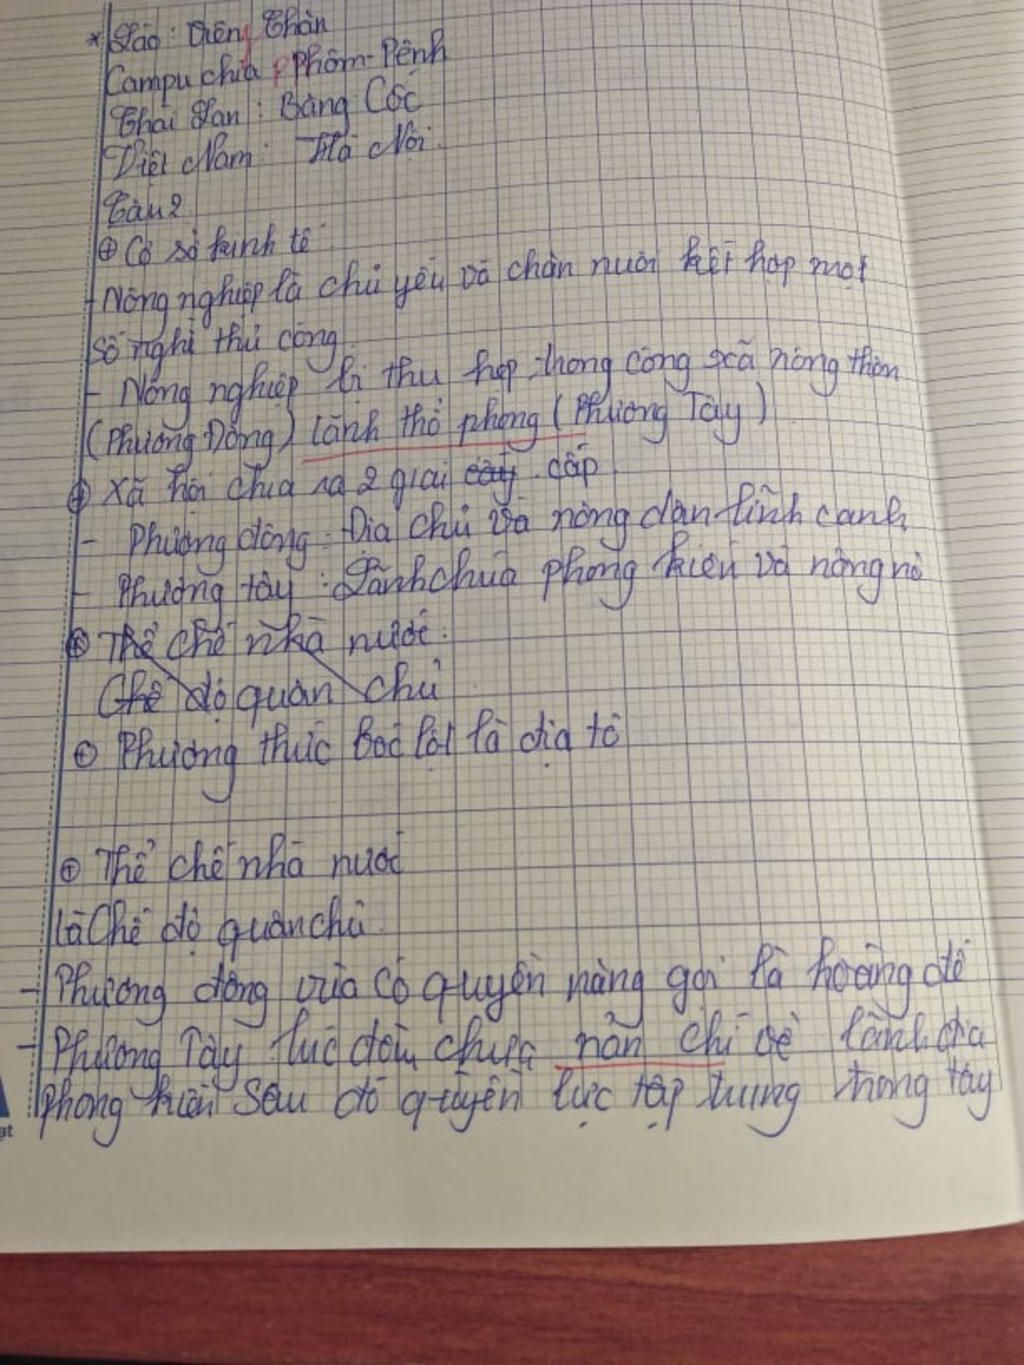 * Lào: Viêng Chăn
Campuchia Phôm-Pênh
Thái Lan: Băng Cốc
Việt Nam: Hà Nội
Câu 2
⊕ Cơ sở kinh tế
- Nông nghiệp là chủ yếu và chăn nuôi kết hợp một
số nghề thủ công
- Nông nghiệp bị thu hẹp trong công xã nông thôn
(Phương Đông) lãnh thổ phong (Phương Tây)
⊕ Xã hội chia ra 2 giai cấp
- Phương đông: Địa chủ và nông dân lĩnh canh
- Phương tây: Lãnh chúa phong kiến và nông nô
⊕ Thể chế nhà nước:
Chế độ quân chủ
⊕ Phương thức bóc lột là địa tô
⊕ Thể chế nhà nước
là Chế độ quân chủ
- Phương đông vua có quyền năng gọi là hoàng đế
- Phương Tây lúc đầu chưa nản chí về lãnh địa
phong kiến sau đó quyền lực tập trung trong tay